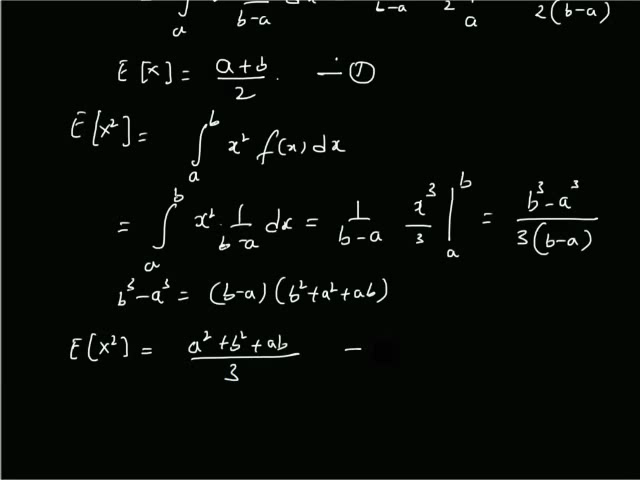 ∫ₐ b-a b-a 2 a 2(b-a)
E[x] = (a+b)/2 . — ①
E[x²] = ∫ₐᵇ x² f(x) dx
= ∫ₐᵇ x² · 1/(b-a) dx = 1/(b-a) x³/3 |ₐᵇ = (b³-a³)/(3(b-a))
b³-a³ = (b-a)(b²+a²+ab)
E[x²] = (a²+b²+ab)/3 —